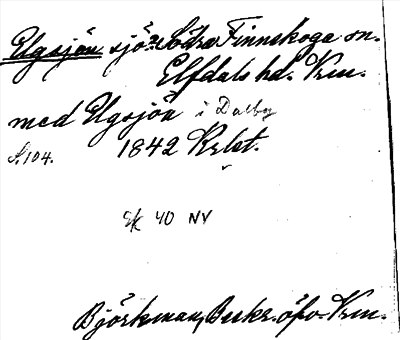 Ugsjön sjö: Södra Finnskoga sn.
Elfdals hd. Vrm.
med Ugsjön i Dalby
S. 104. 1842 Krbt.
Ek 40 NV
Björkman, Beskr. öfv. Vrm.